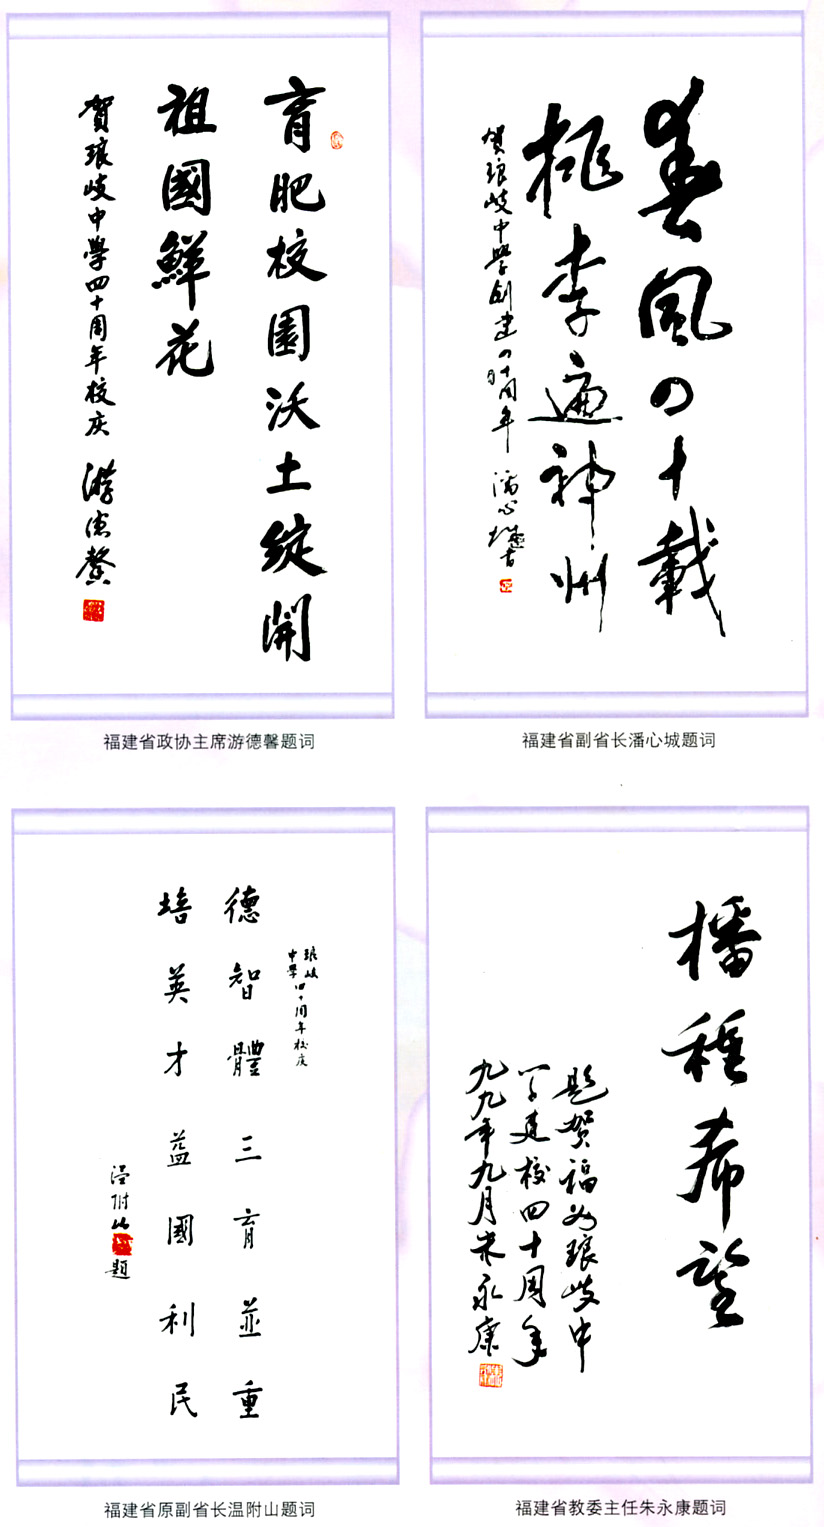 育肥校園沃土綻開
祖國鮮花
賀琅岐中學四十周年校庆
游德馨
福建省政协主席游德馨题词
春風四十載
桃李遍神州
贺琅岐中學創建四十周年
潘心城
福建省副省长潘心城题词
琅岐
中學四十周年校庆
德智體三育並重
培英才益國利民
温附山題
福建省原副省长温附山题词
播种希望
题贺福州琅岐中
学建校四十周年
九九年九月朱永康
福建省教委主任朱永康题词